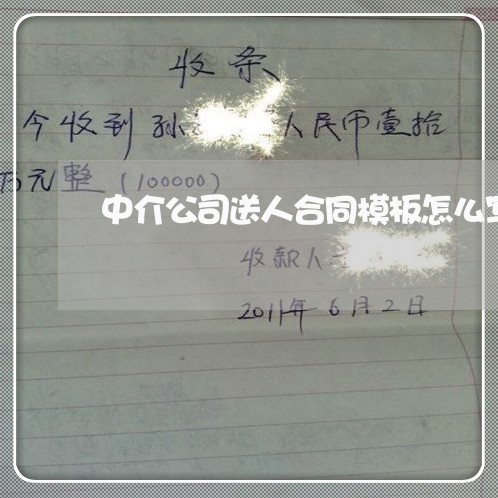 收条
今收到孙 人民币壹拾
万元整（100000）
中介公司送人合同模板怎么
收款人
2011年6月2日